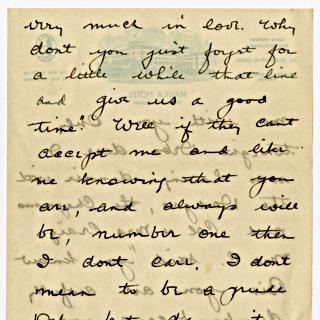 very much in love. Why
dont you just forget for
a little while that line
and give us a good
time." Well if they cant
accept me and like
me knowing that you
are, and always will
be, number one then
I dont care. I dont
mean to be a prude
MANILA HOTEL